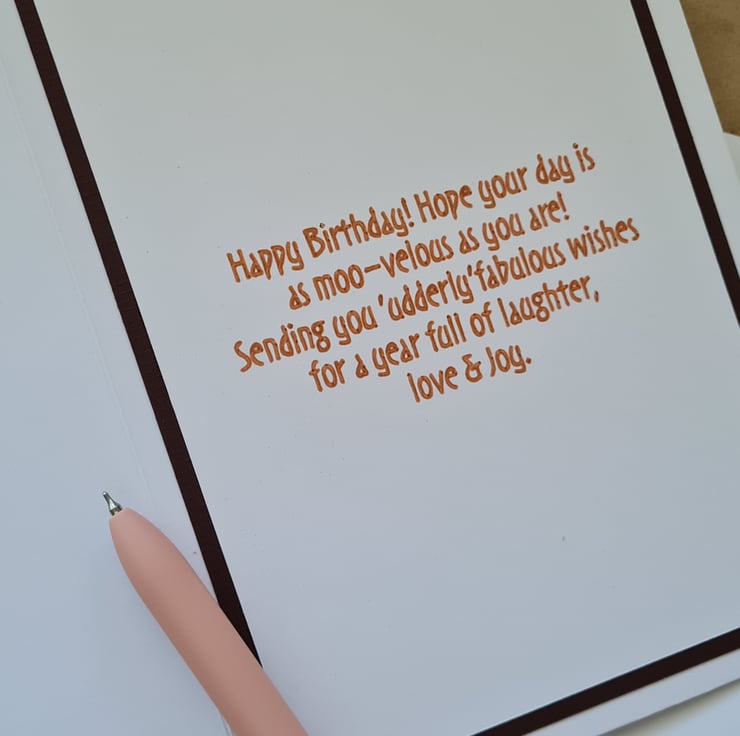 Happy Birthday! Hope your day is
as moo-velous as you are!
Sending you 'udderly' fabulous wishes
for a year full of laughter,
love & Joy.